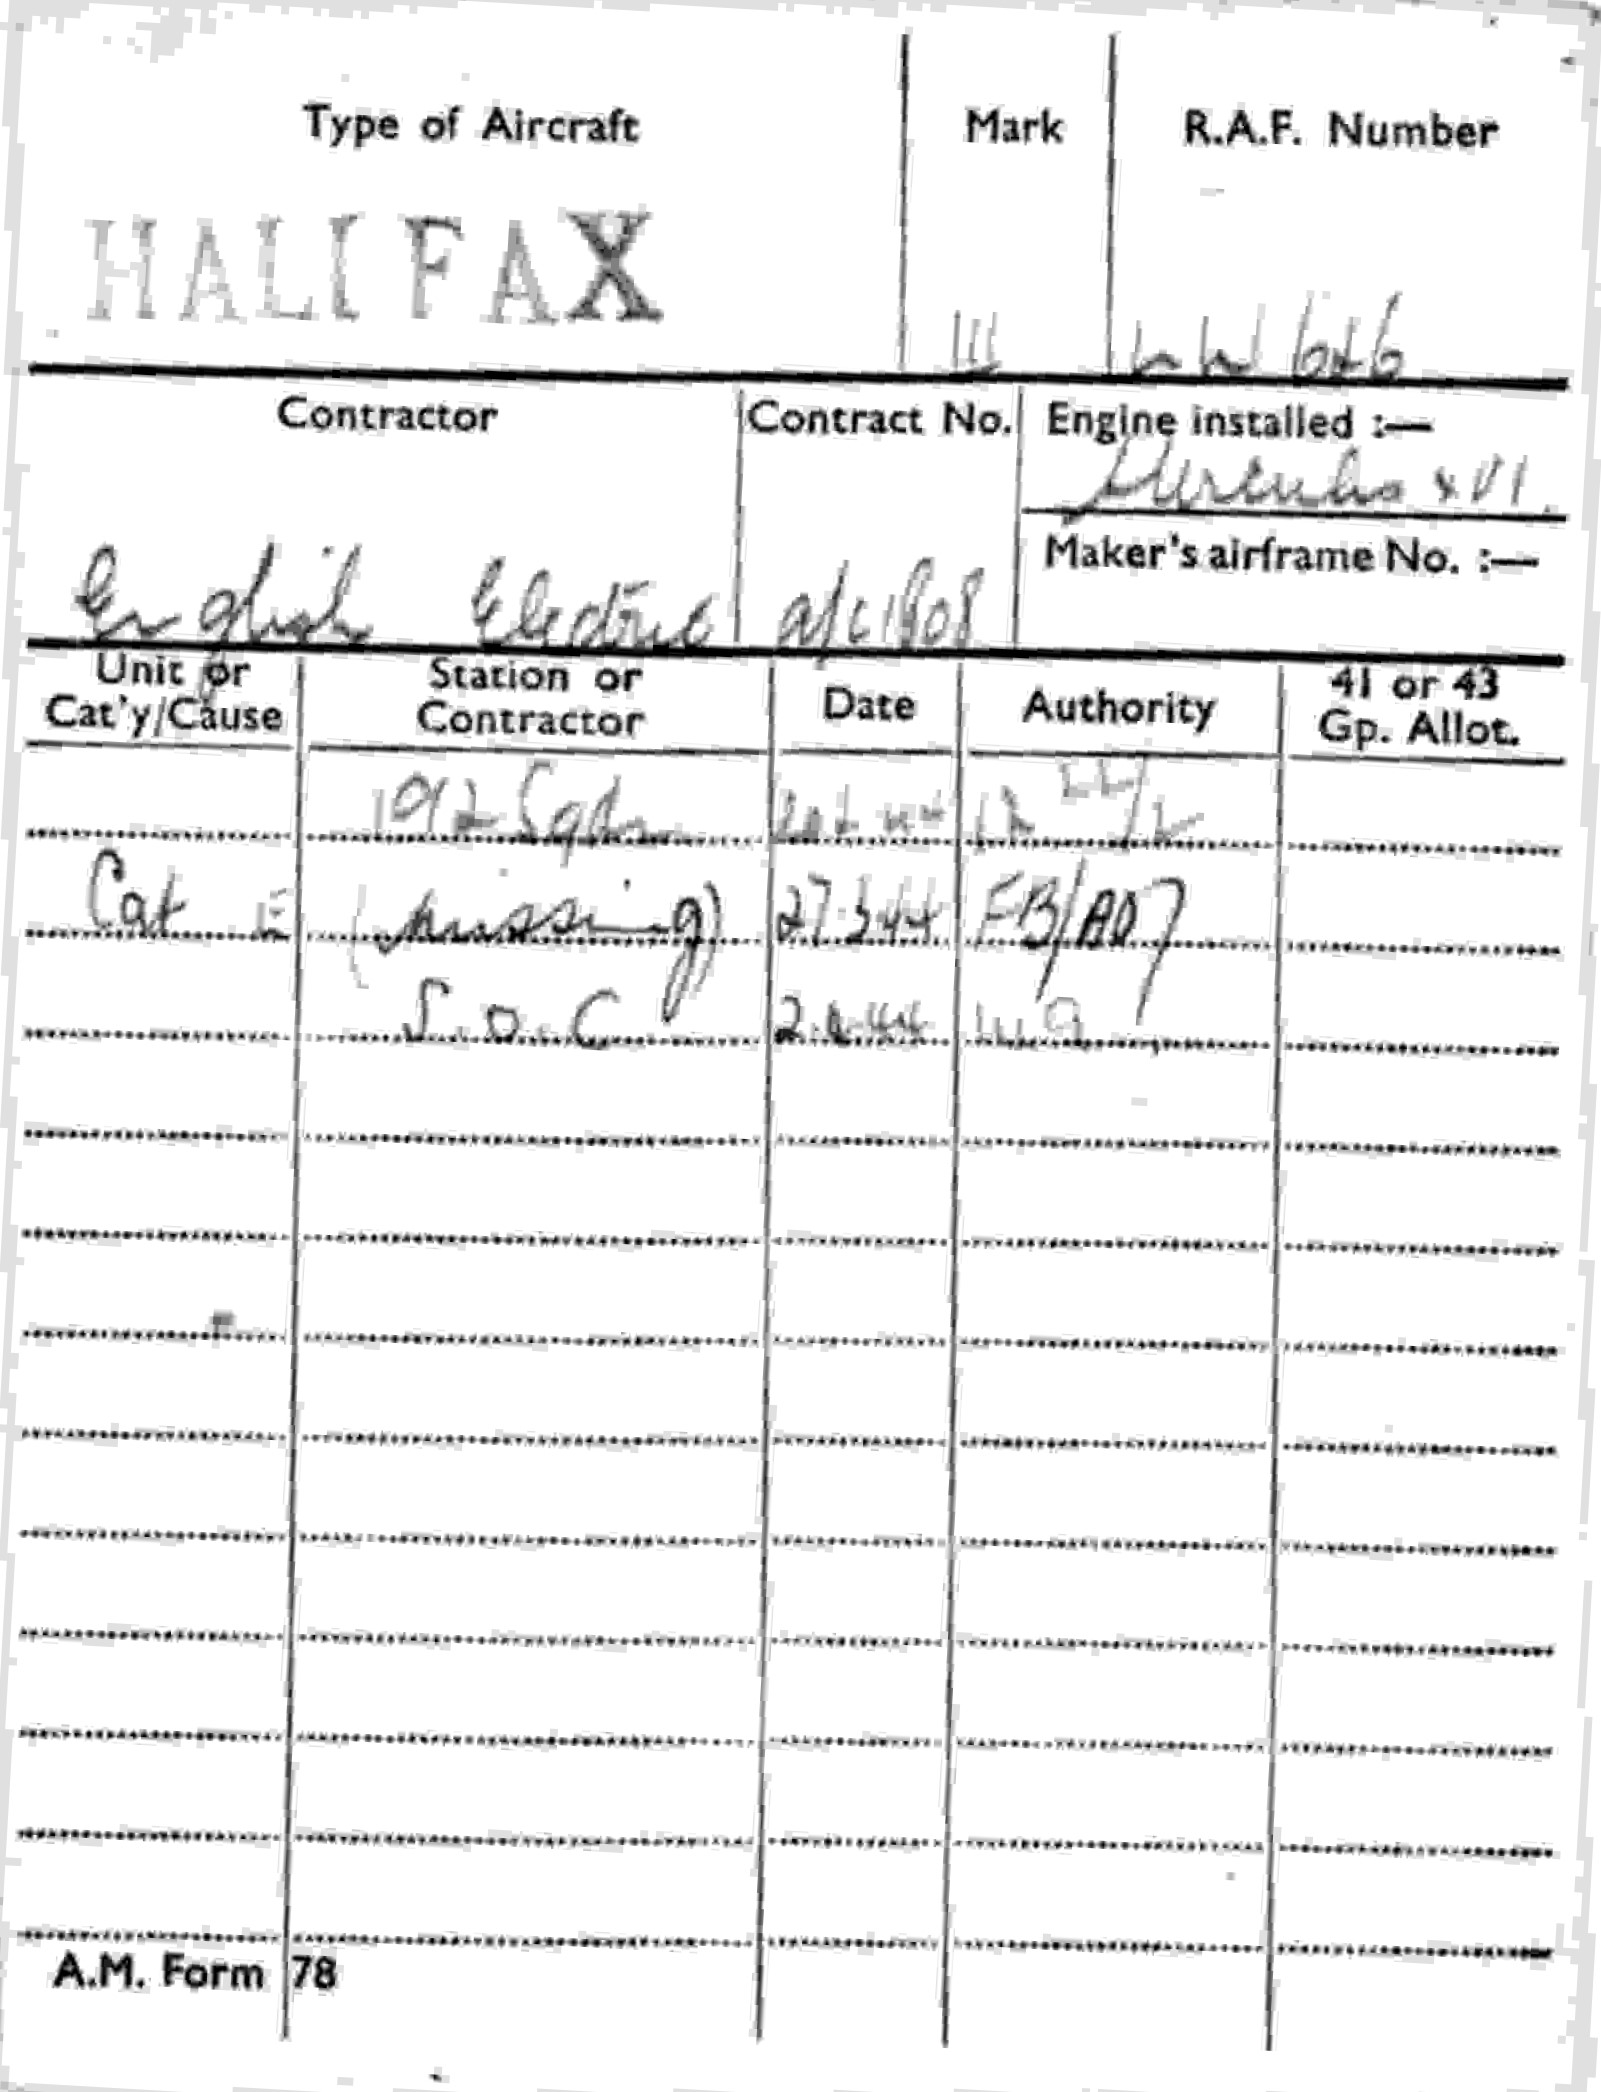 Type of Aircraft Mark R.A.F. Number
HALIFAX III
Contractor Contract No. Engine installed :—
Hercules XVI.
Maker's airframe No. :—
English Electric a/c 1808
Unit or Cat'y/Cause Station or Contractor Date Authority 41 or 43 Gp. Allot.
192 Sqdn
Cat E (missing) 27.3.44 FB/BD7
S.O.C
A.M. Form 78